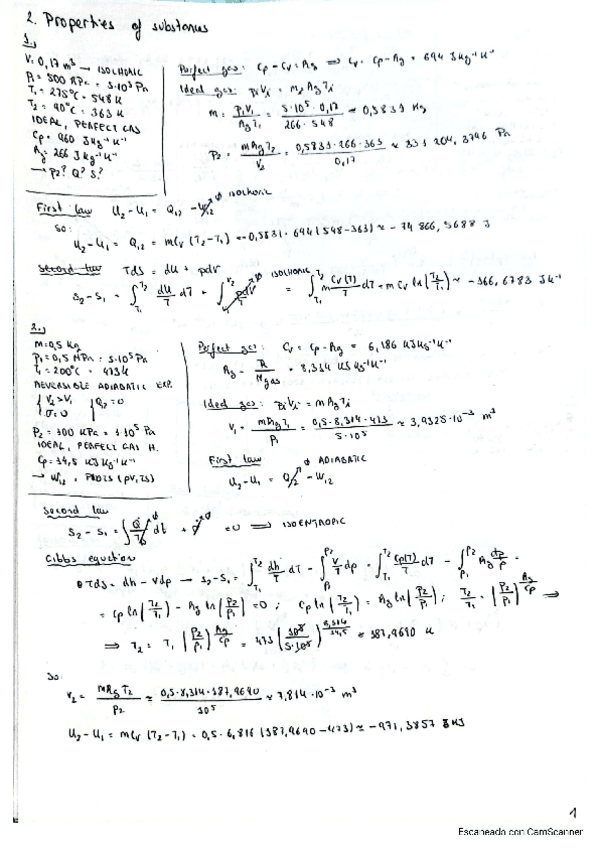 2. Properties of substances
1.,
V = 0,17 m³ → ISOCHORIC
P₁ = 500 KPa = 5·10⁵ Pa
T₁ = 275°C = 548 K
T₂ = 90°C = 363 K
IDEAL, PERFECT GAS
Cp = 960 J kg⁻¹ K⁻¹
Ag = 266 J kg⁻¹ K⁻¹
→ P₂? Q? S?
Perfect gas: Cp - Cv = Ag ⟹ Cv = Cp - Ag = 694 J kg⁻¹ K⁻¹
Ideal gas: PᵢVᵢ = mᵢ Ag Tᵢ
m = P₁V₁ / AgT₁ = 5·10⁵·0,17 / 266·548 ≈ 0,5831 Kg
P₂ = mAgT₂ / V₂ = 0,5831·266·363 / 0,17 ≈ 331 204, 3796 Pa
First law U₂ - U₁ = Q₁₂ - W₁₂ ∅ ISOCHORIC
so:
U₂ - U₁ = Q₁₂ = mCv (T₂ - T₁) = -0,5831·694 (548 - 363) ≈ - 74 866, 5688 J
Second law Tds = du + pdv
S₂ - S₁ = ∫ᵀ²ₜ₁ dU/T dT + ∫ⱽ²ᵥ₁ pdV ∅ ISOCHORIC = ∫ᵀ²ₜ₁ m Cv(T)/T dT = m Cv ln(T₂/T₁) ≈ -166, 6783 J K⁻¹
2.,
m = 0,5 Kg
P₁ = 0,5 MPa = 5·10⁵ Pa
T₁ = 200°C = 473 K
REVERSIBLE ADIABATIC EXP.
{ V₂ > V₁ { Q₁₂ = 0
σ = 0
P₂ = 100 KPa = 1·10⁵ Pa
IDEAL, PERFECT GAS H.
Cp = 14,5 KJ Kg⁻¹ K⁻¹
→ W₁₂, PROCS (PV, TS)
Perfect gas: Cv = Cp - Ag = 6,186 KJ Kg⁻¹ K⁻¹
Ag = R / Mgas = 8,314 KJ Kg⁻¹ K⁻¹
Ideal gas: PᵢVᵢ = mAgTᵢ
V₁ = mAgT₁ / P₁ = 0,5·8,314·473 / 5·10⁵ ≈ 3,9325·10⁻³ m³
First law ∅ ADIABATIC
U₂ - U₁ = Q₁₂ - W₁₂
Second law
S₂ - S₁ = ∫ Q/T dt + σ = 0 ⟹ ISOENTROPIC
Gibbs equation
Tds = dh - vdp → S₂ - S₁ = ∫ᵀ²ₜ₁ dh/T dT - ∫ᴾ²ₚ₁ V/T dp = ∫ᵀ²ₜ₁ Cp(T)/T dT - ∫ᴾ²ₚ₁ Ag dp/p =
= Cp ln(T₂/T₁) - Ag ln(P₂/P₁) = 0 ; Cp ln(T₂/T₁) = Ag ln(P₂/P₁) ; T₂/T₁ = (P₂/P₁)^(Ag/Cp) ⟹
⟹ T₂ = T₁ (P₂/P₁)^(Ag/Cp) = 473 (10⁵/5·10⁵)^(8,314/14,5) ≈ 187,9690 K
So:
V₂ = mAgT₂ / P₂ ≈ 0,5·8,314·187,9690 / 10⁵ ≈ 7,814·10⁻³ m³
U₂ - U₁ = mCv (T₂ - T₁) = 0,5·6,816 (187,9690 - 473) ≈ -971,3857 KJ
1
Escaneado con CamScanner